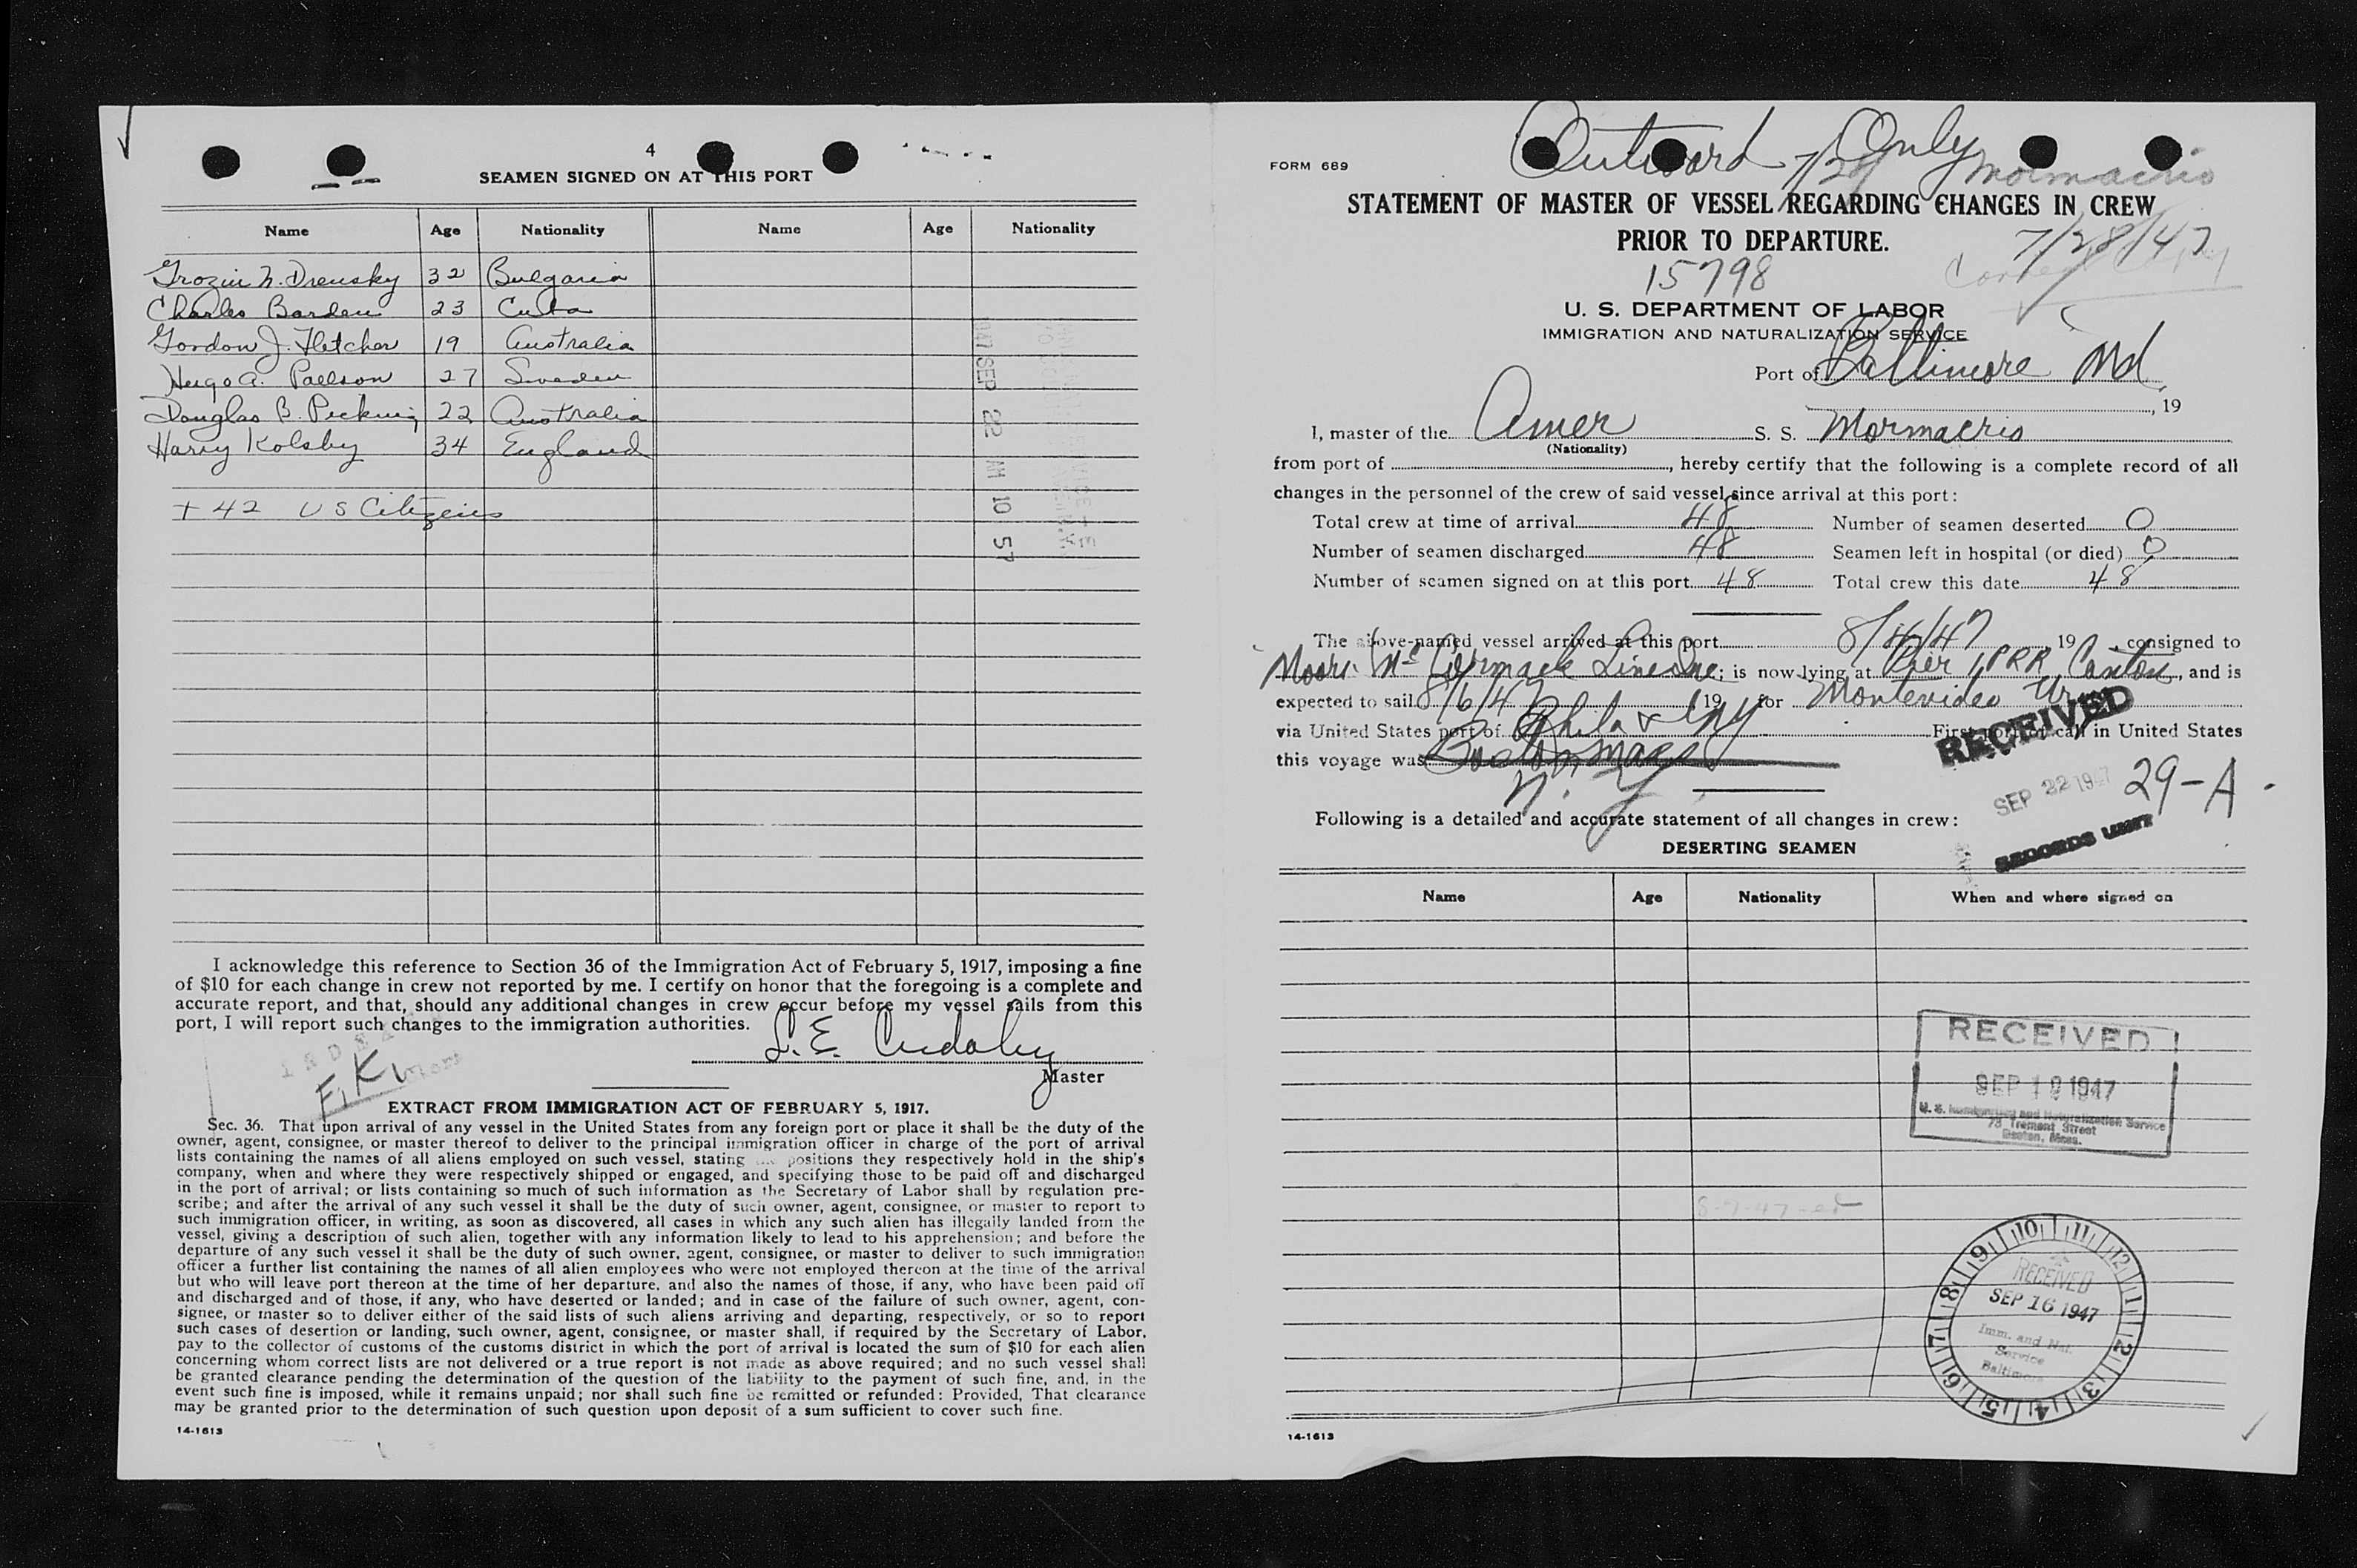 4
SEAMEN SIGNED ON AT THIS PORT
Name Age Nationality Name Age Nationality
Grozin N. Drensky 32 Bulgaria
Charles Barden 23 Cuba
Gordon J. Fletcher 19 Australia
Hugo A. Paelson 27 Sweden
Douglas B. Picking 22 Australia
Harry Kolsby 34 England
+ 42 US Citizens
1947 SEP 22 AM 10 57
I acknowledge this reference to Section 36 of the Immigration Act of February 5, 1917, imposing a fine
of $10 for each change in crew not reported by me. I certify on honor that the foregoing is a complete and
accurate report, and that, should any additional changes in crew occur before my vessel sails from this
port, I will report such changes to the immigration authorities.
L. E. Cudahy
Master
F. K.
EXTRACT FROM IMMIGRATION ACT OF FEBRUARY 5, 1917.
Sec. 36. That upon arrival of any vessel in the United States from any foreign port or place it shall be the duty of the
owner, agent, consignee, or master thereof to deliver to the principal immigration officer in charge of the port of arrival
lists containing the names of all aliens employed on such vessel, stating the positions they respectively hold in the ship's
company, when and where they were respectively shipped or engaged, and specifying those to be paid off and discharged
in the port of arrival; or lists containing so much of such information as the Secretary of Labor shall by regulation pre-
scribe; and after the arrival of any such vessel it shall be the duty of such owner, agent, consignee, or master to report to
such immigration officer, in writing, as soon as discovered, all cases in which any such alien has illegally landed from the
vessel, giving a description of such alien, together with any information likely to lead to his apprehension; and before the
departure of any such vessel it shall be the duty of such owner, agent, consignee, or master to deliver to such immigration
officer a further list containing the names of all alien employees who were not employed thereon at the time of the arrival
but who will leave port thereon at the time of her departure, and also the names of those, if any, who have been paid off
and discharged and of those, if any, who have deserted or landed; and in case of the failure of such owner, agent, con-
signee, or master so to deliver either of the said lists of such aliens arriving and departing, respectively, or so to report
such cases of desertion or landing, such owner, agent, consignee, or master shall, if required by the Secretary of Labor,
pay to the collector of customs of the customs district in which the port of arrival is located the sum of $10 for each alien
concerning whom correct lists are not delivered or a true report is not made as above required; and no such vessel shall
be granted clearance pending the determination of the question of the liability to the payment of such fine, and, in the
event such fine is imposed, while it remains unpaid; nor shall such fine be remitted or refunded: Provided, That clearance
may be granted prior to the determination of such question upon deposit of a sum sufficient to cover such fine.
14-1613
Outward Only
FORM 689
7/29 Mormacrio
STATEMENT OF MASTER OF VESSEL REGARDING CHANGES IN CREW
PRIOR TO DEPARTURE.
7/28/47
15798
U. S. DEPARTMENT OF LABOR
IMMIGRATION AND NATURALIZATION SERVICE
Port of Baltimore Md
, 19
I, master of the Amer S. S. Mormacrio
(Nationality)
from port of , hereby certify that the following is a complete record of all
changes in the personnel of the crew of said vessel since arrival at this port:
Total crew at time of arrival 48 Number of seamen deserted 0
Number of seamen discharged 48 Seamen left in hospital (or died) 0
Number of seamen signed on at this port 48 Total crew this date 48
The above-named vessel arrived at this port 8/4/47 19 , consigned to
Moore McCormack Lines Inc; is now lying at Pier 1, PRR, Canton, and is
expected to sail 8/6/47, 19 for Montevideo Ur
via United States port of Phila & NY First port of call in United States
this voyage was Boston Mass
N. Y.
RECEIVED
SEP 22 1947
RECORDS UNIT
29-A
Following is a detailed and accurate statement of all changes in crew:
DESERTING SEAMEN
Name Age Nationality When and where signed on
RECEIVED
SEP 19 1947
U. S. Immigration and Naturalization Service
73 Tremont Street
Boston, Mass.
10 11 12 1 2 3 4 5 6 7 8 9
RECEIVED
SEP 16 1947
Imm. and Nat.
Service
Baltimore
14-1613